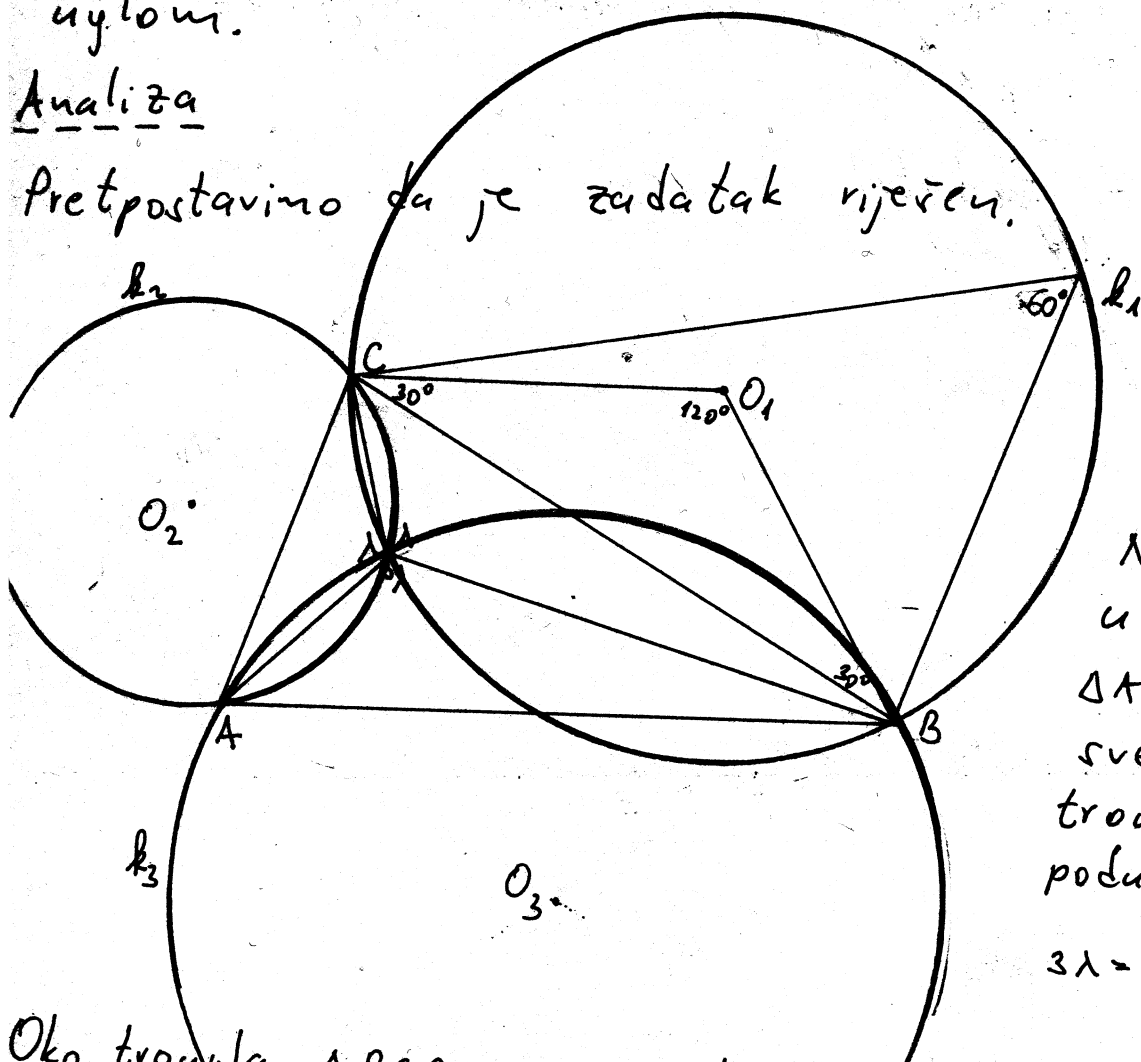 uglom.
Analiza
Pretpostavimo da je zadatak riješen.
k₂
60°
k₁
C
30°
120°
O₁
O₂
λ
λ
λ
u
30°
ΔA
A
B
sve
k₃
O₃
3λ=
Oko trougla